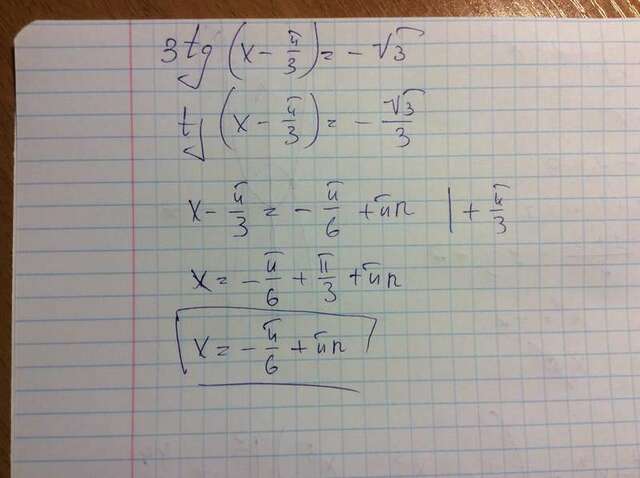 3tg(x - π/3) = -√3
tg(x - π/3) = - √3/3
x - π/3 = - π/6 + πn | + π/3
x = - π/6 + π/3 + πn
x = - π/6 + πn